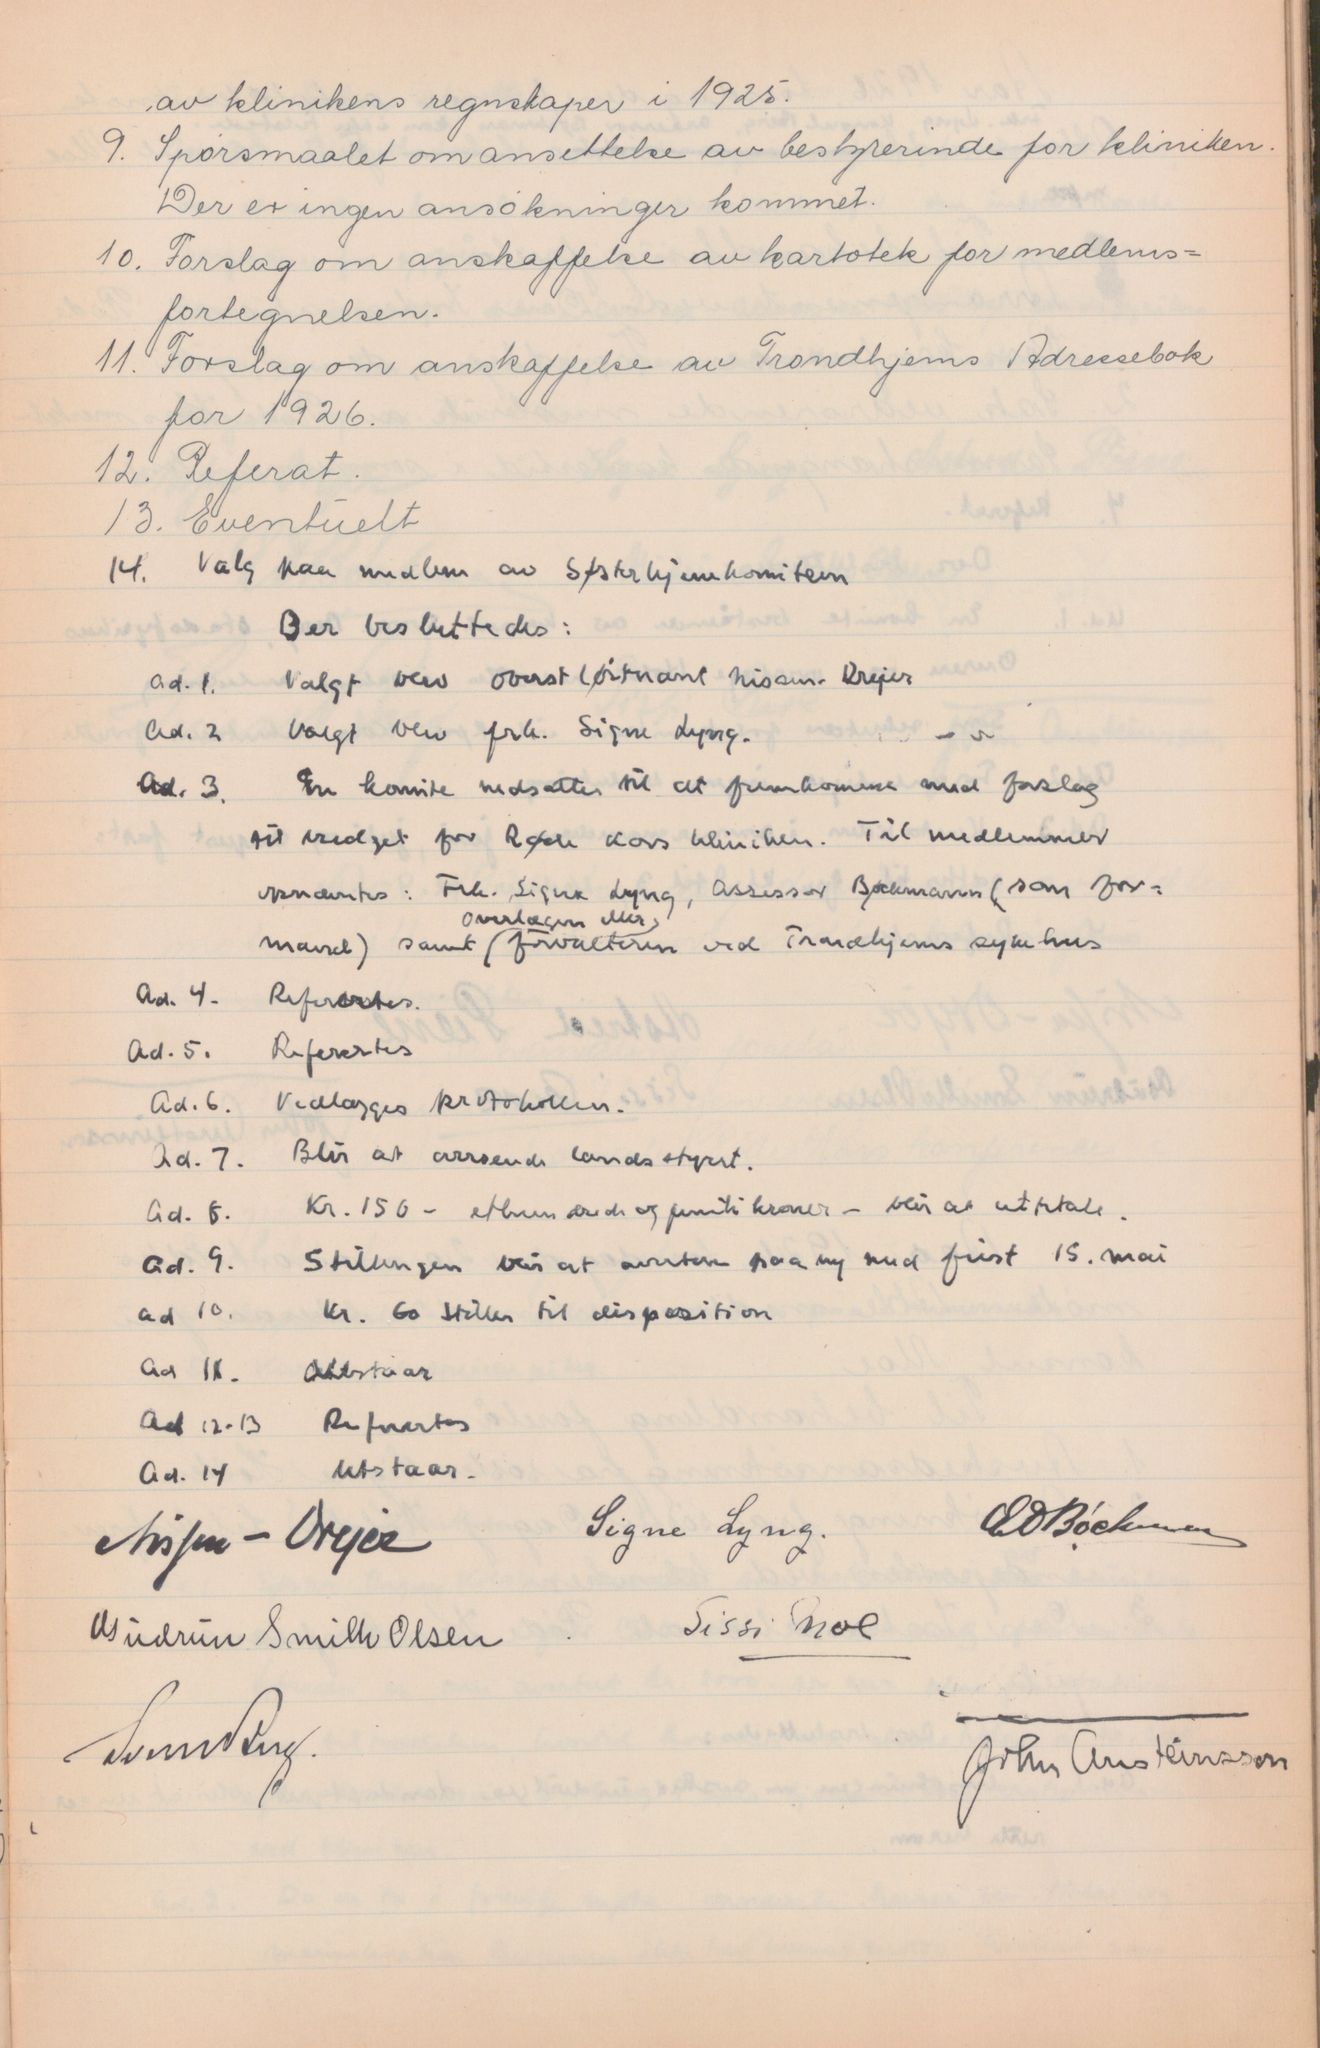 av klinikens regnskaper i 1925.
9. Spørsmaalet om ansettelse av bestyrerinde for kliniken.
Der er ingen ansökninger kommet.
10. Forslag om anskaffelse av kartotek for medlems=
fortegnelsen.
11. Forslag om anskaffelse av Trondhjems Adressebok
for 1926.
12. Referat.
13. Eventuelt
14. Valg paa medlem av Søsterhjemkomiteen
Der besluttedes:
Ad. 1. Valgt blev oberstløitnant Nissen-Drejer
Ad. 2 Valgt blev frk. Signe Lyng.
Ad. 3. En komite nedsattes til at fremkomme med forslag
til budget for Røde Kors kliniken. Til medlemmer
opnævntes: Frk. Signe Lyng, Assessor Bøckmann (som for=
overlægen eller
mand) samt (forvalteren ved Trondhjems sykehus
Ad. 4. Refertes.
Ad. 5. Refertes
Ad. 6. Vedlægges protokollen.
Ad. 7. Blir at oversende landsstyret.
Ad. 8. Kr. 150 - ethundrede og femti kroner - blir at utbetale.
Ad. 9. Stillingen blir at avertere paa ny med frist 15. mai
ad 10. Kr. 60 stilles til disposition
Ad 11. Utstaar
Ad 12-13 Refertes
Ad. 14 Utstaar.
Nissen - Drejer Signe Lyng. Bøckman
Gudrun Smith Olsen Sissi
John Austeinsson